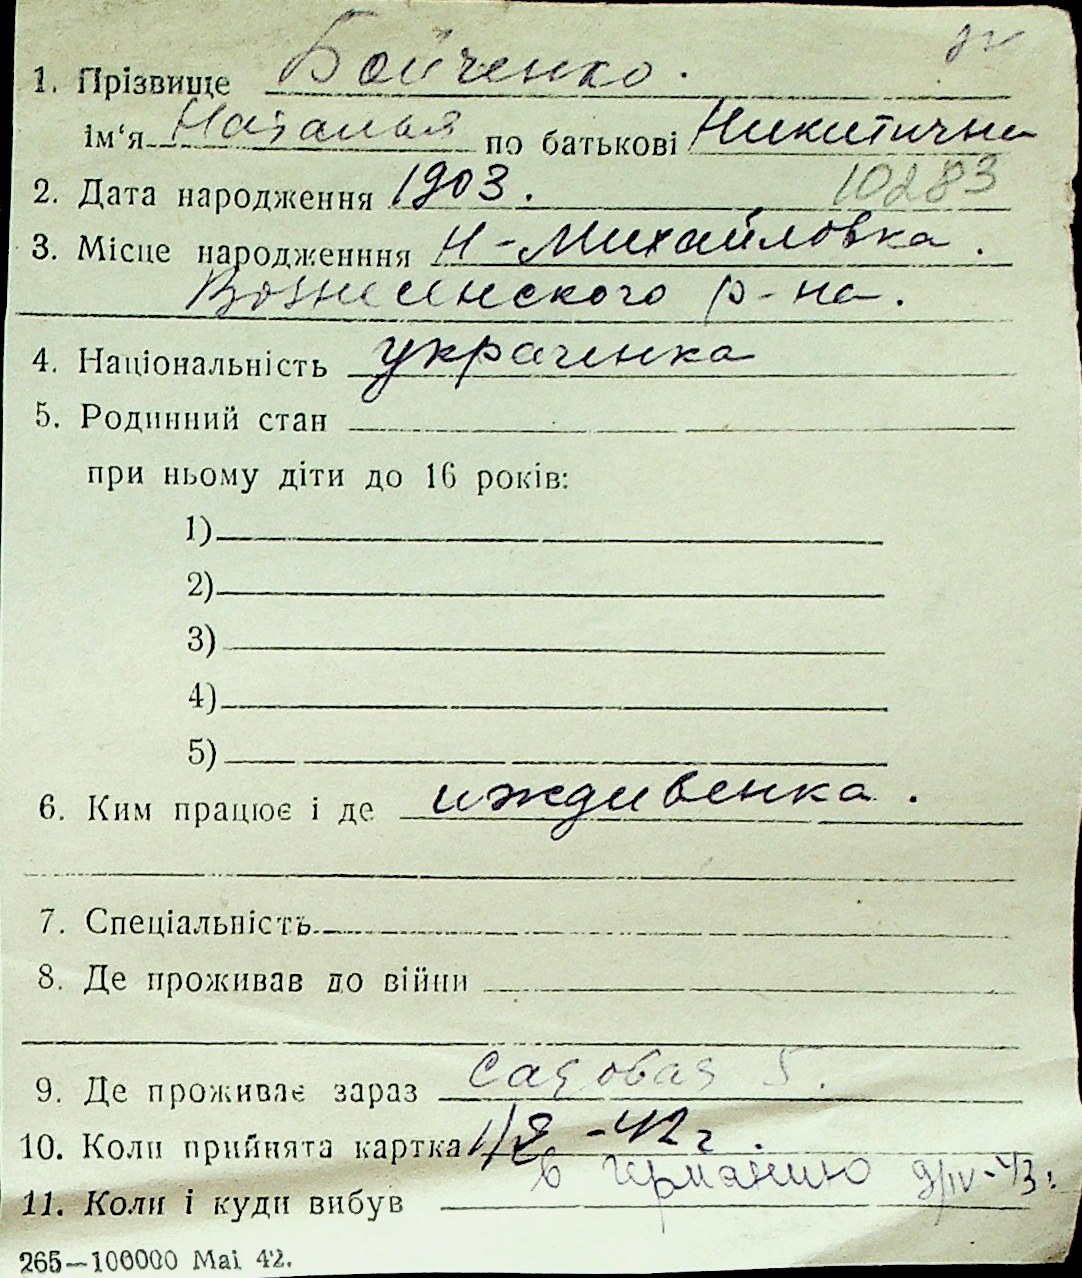 1. Прізвище Бойченко.
ім'я Наталья по батькові Никитична
2. Дата народження 1903. 10283
3. Місце народженння Н-Михайловка.
Вознесенского р-на.
4. Національність украинка
5. Родинний стан
при ньому діти до 16 років:
1)
2)
3)
4)
5)
6. Ким працює і де иждивенка.
7. Спеціальність
8. Де проживав до війни
9. Де проживає зараз Садовая 5.
10. Коли прийнята картка -42 г.
11. Коли і куди вибув в германию 9/IV-43 г.
265—100000 Mai 42.